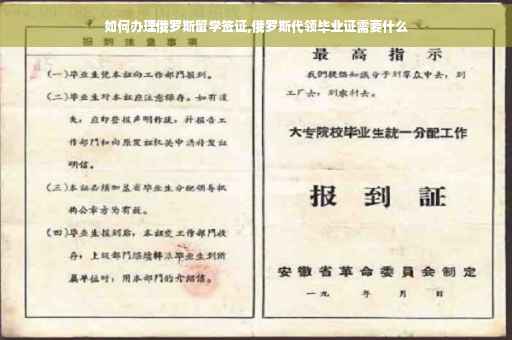 如何办理俄罗斯留学签证,俄罗斯代领毕业证需要什么
报到注意事项
(一)毕业生凭本证向工作部门报到。
(二)毕业生对本证应注意保存。如有遗
失，应即登报声明作废，并报告工
作部门和向原发证机关申请补发证
明信。
(三)本证必须加盖省毕业生分配领导机
构公章方为有效。
(四)毕业生报到后，本证交工作部门收
存，上级部门继续转派毕业生到所
属单位时，用本部门的介绍信。
最高指示
我们提倡知识分子到群众中去，到
工厂去，到农村去。
大专院校毕业生统一分配工作
报到证
安徽省革命委员会制定
一九 年 月 日